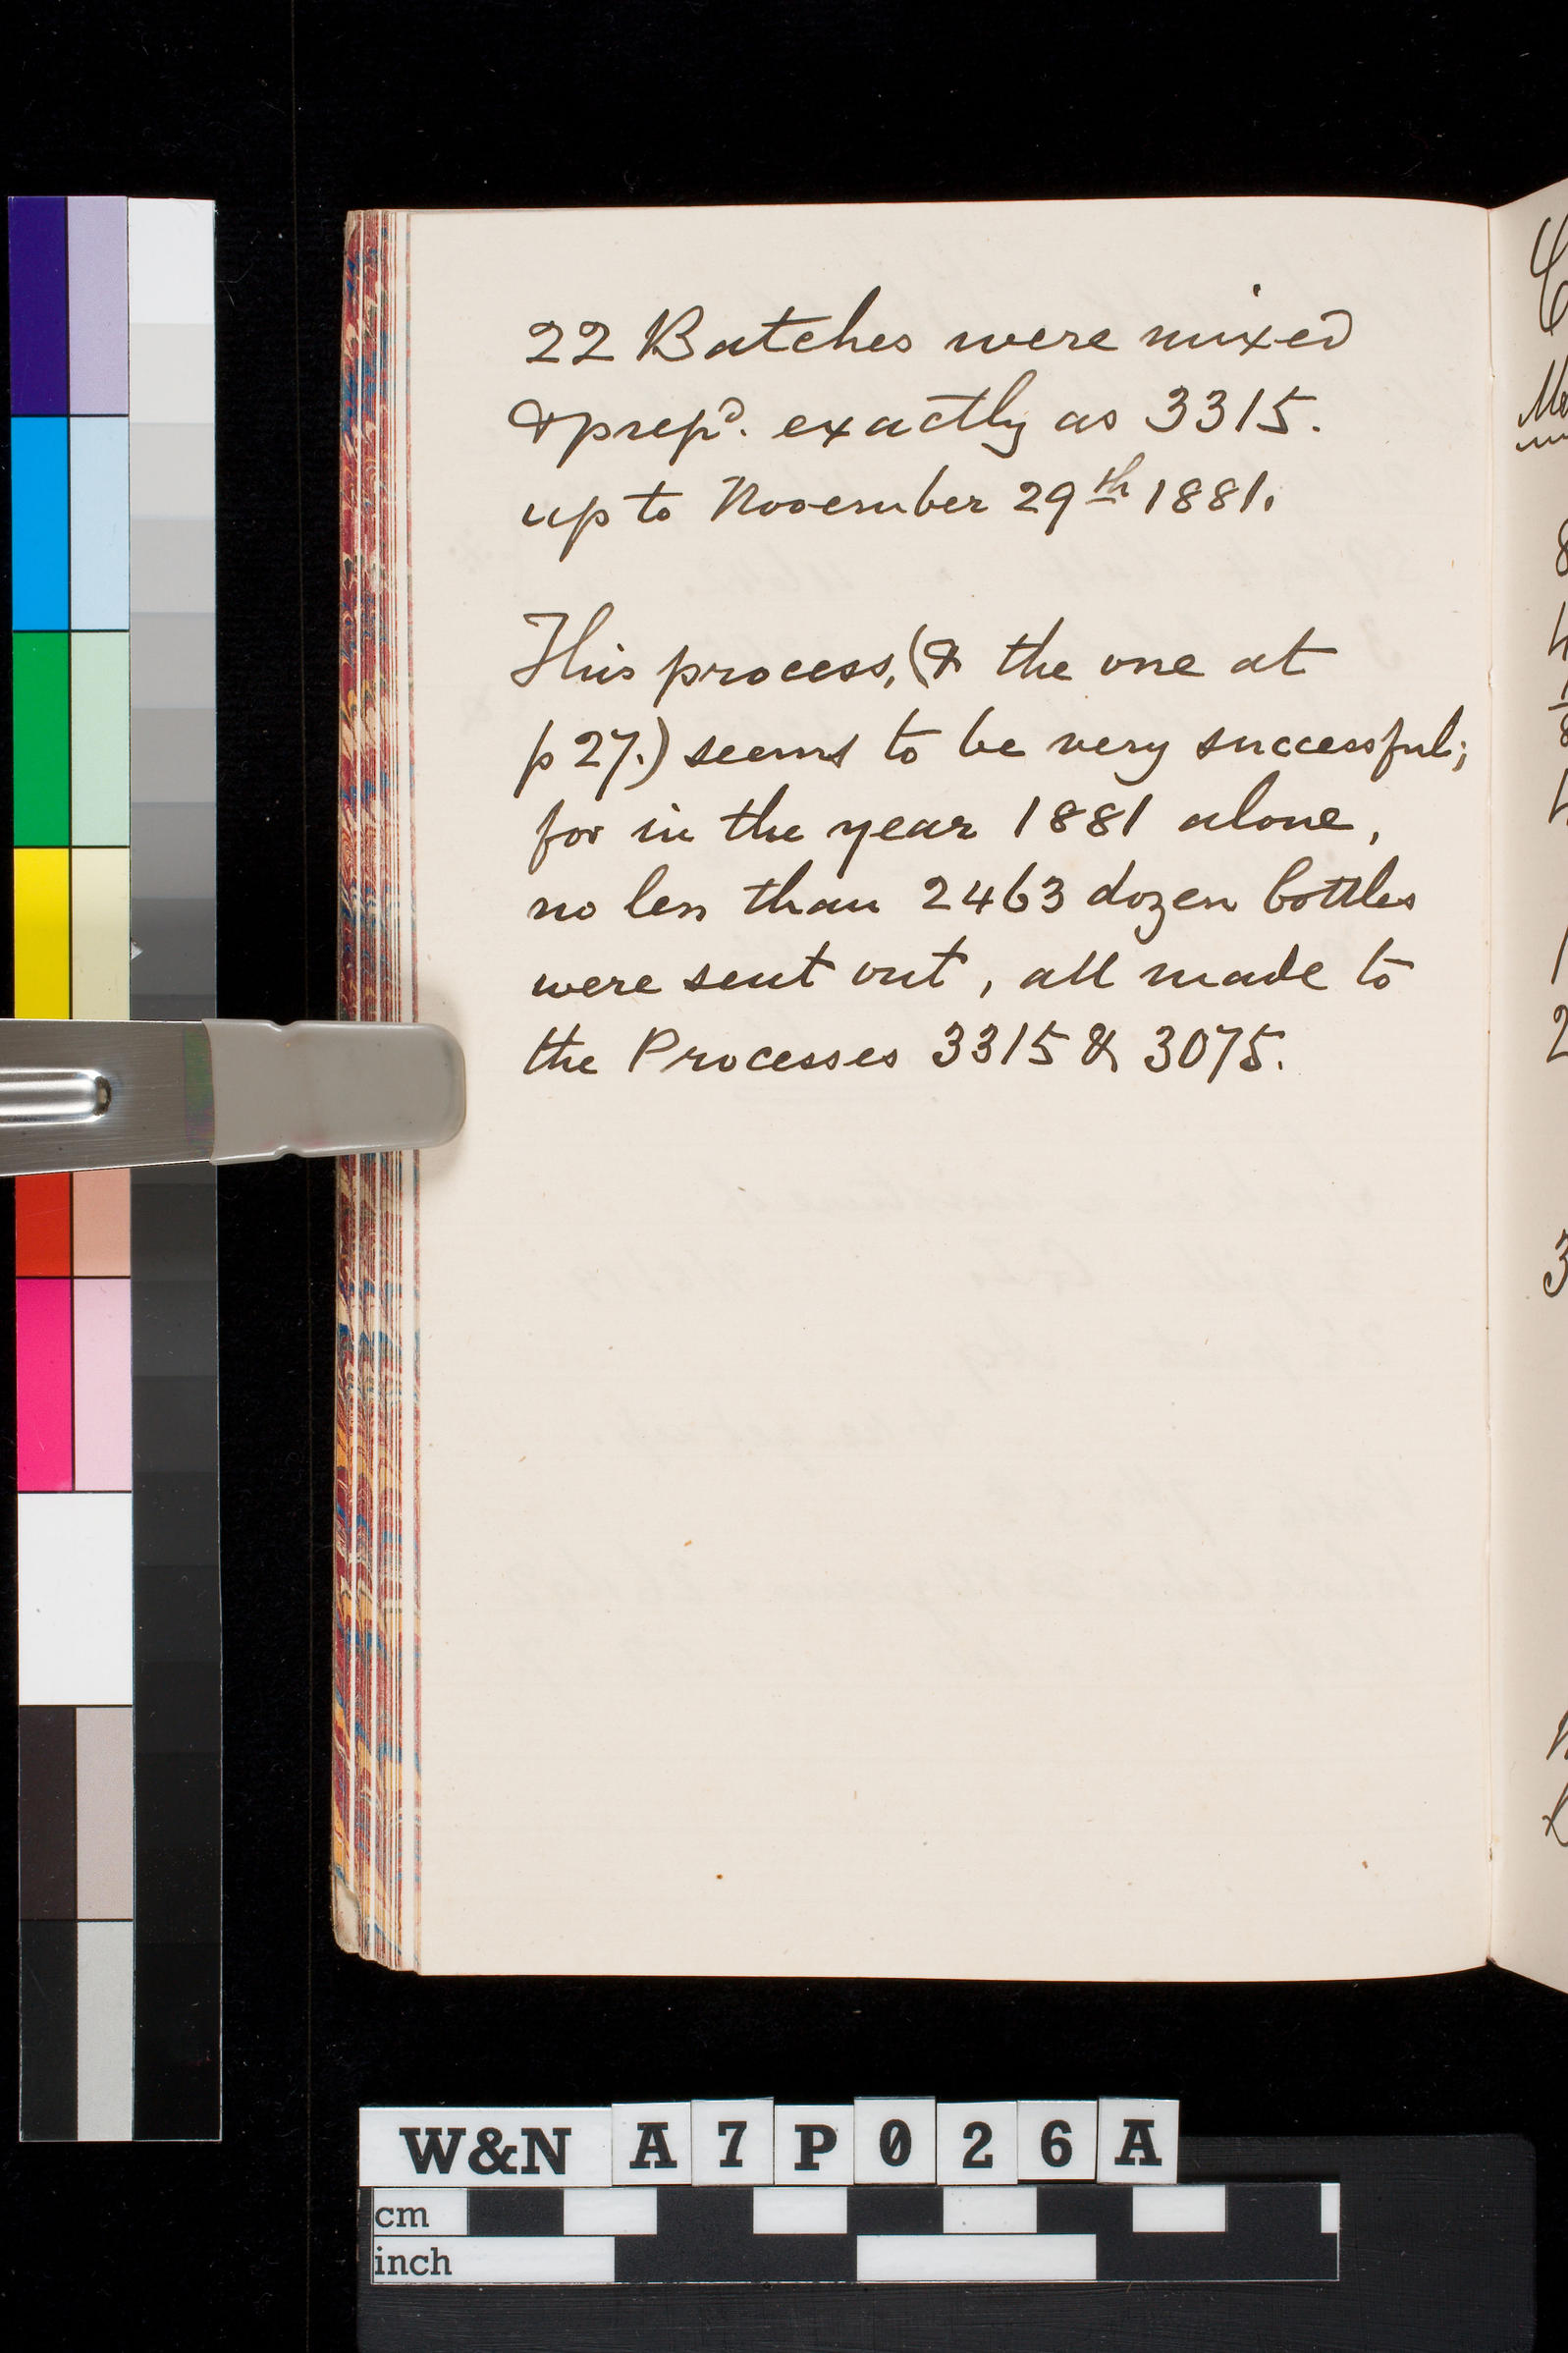 22 Batches were mixed
& prepd. exactly as 3315.
up to November 29th 1881.
This process, (& the one at
p 27.) seems to be very successful;
for in the year 1881 alone,
no less than 2463 dozen bottles
were sent out, all made to
the Processes 3315 & 3075.
W&N A7P026A
cm
inch